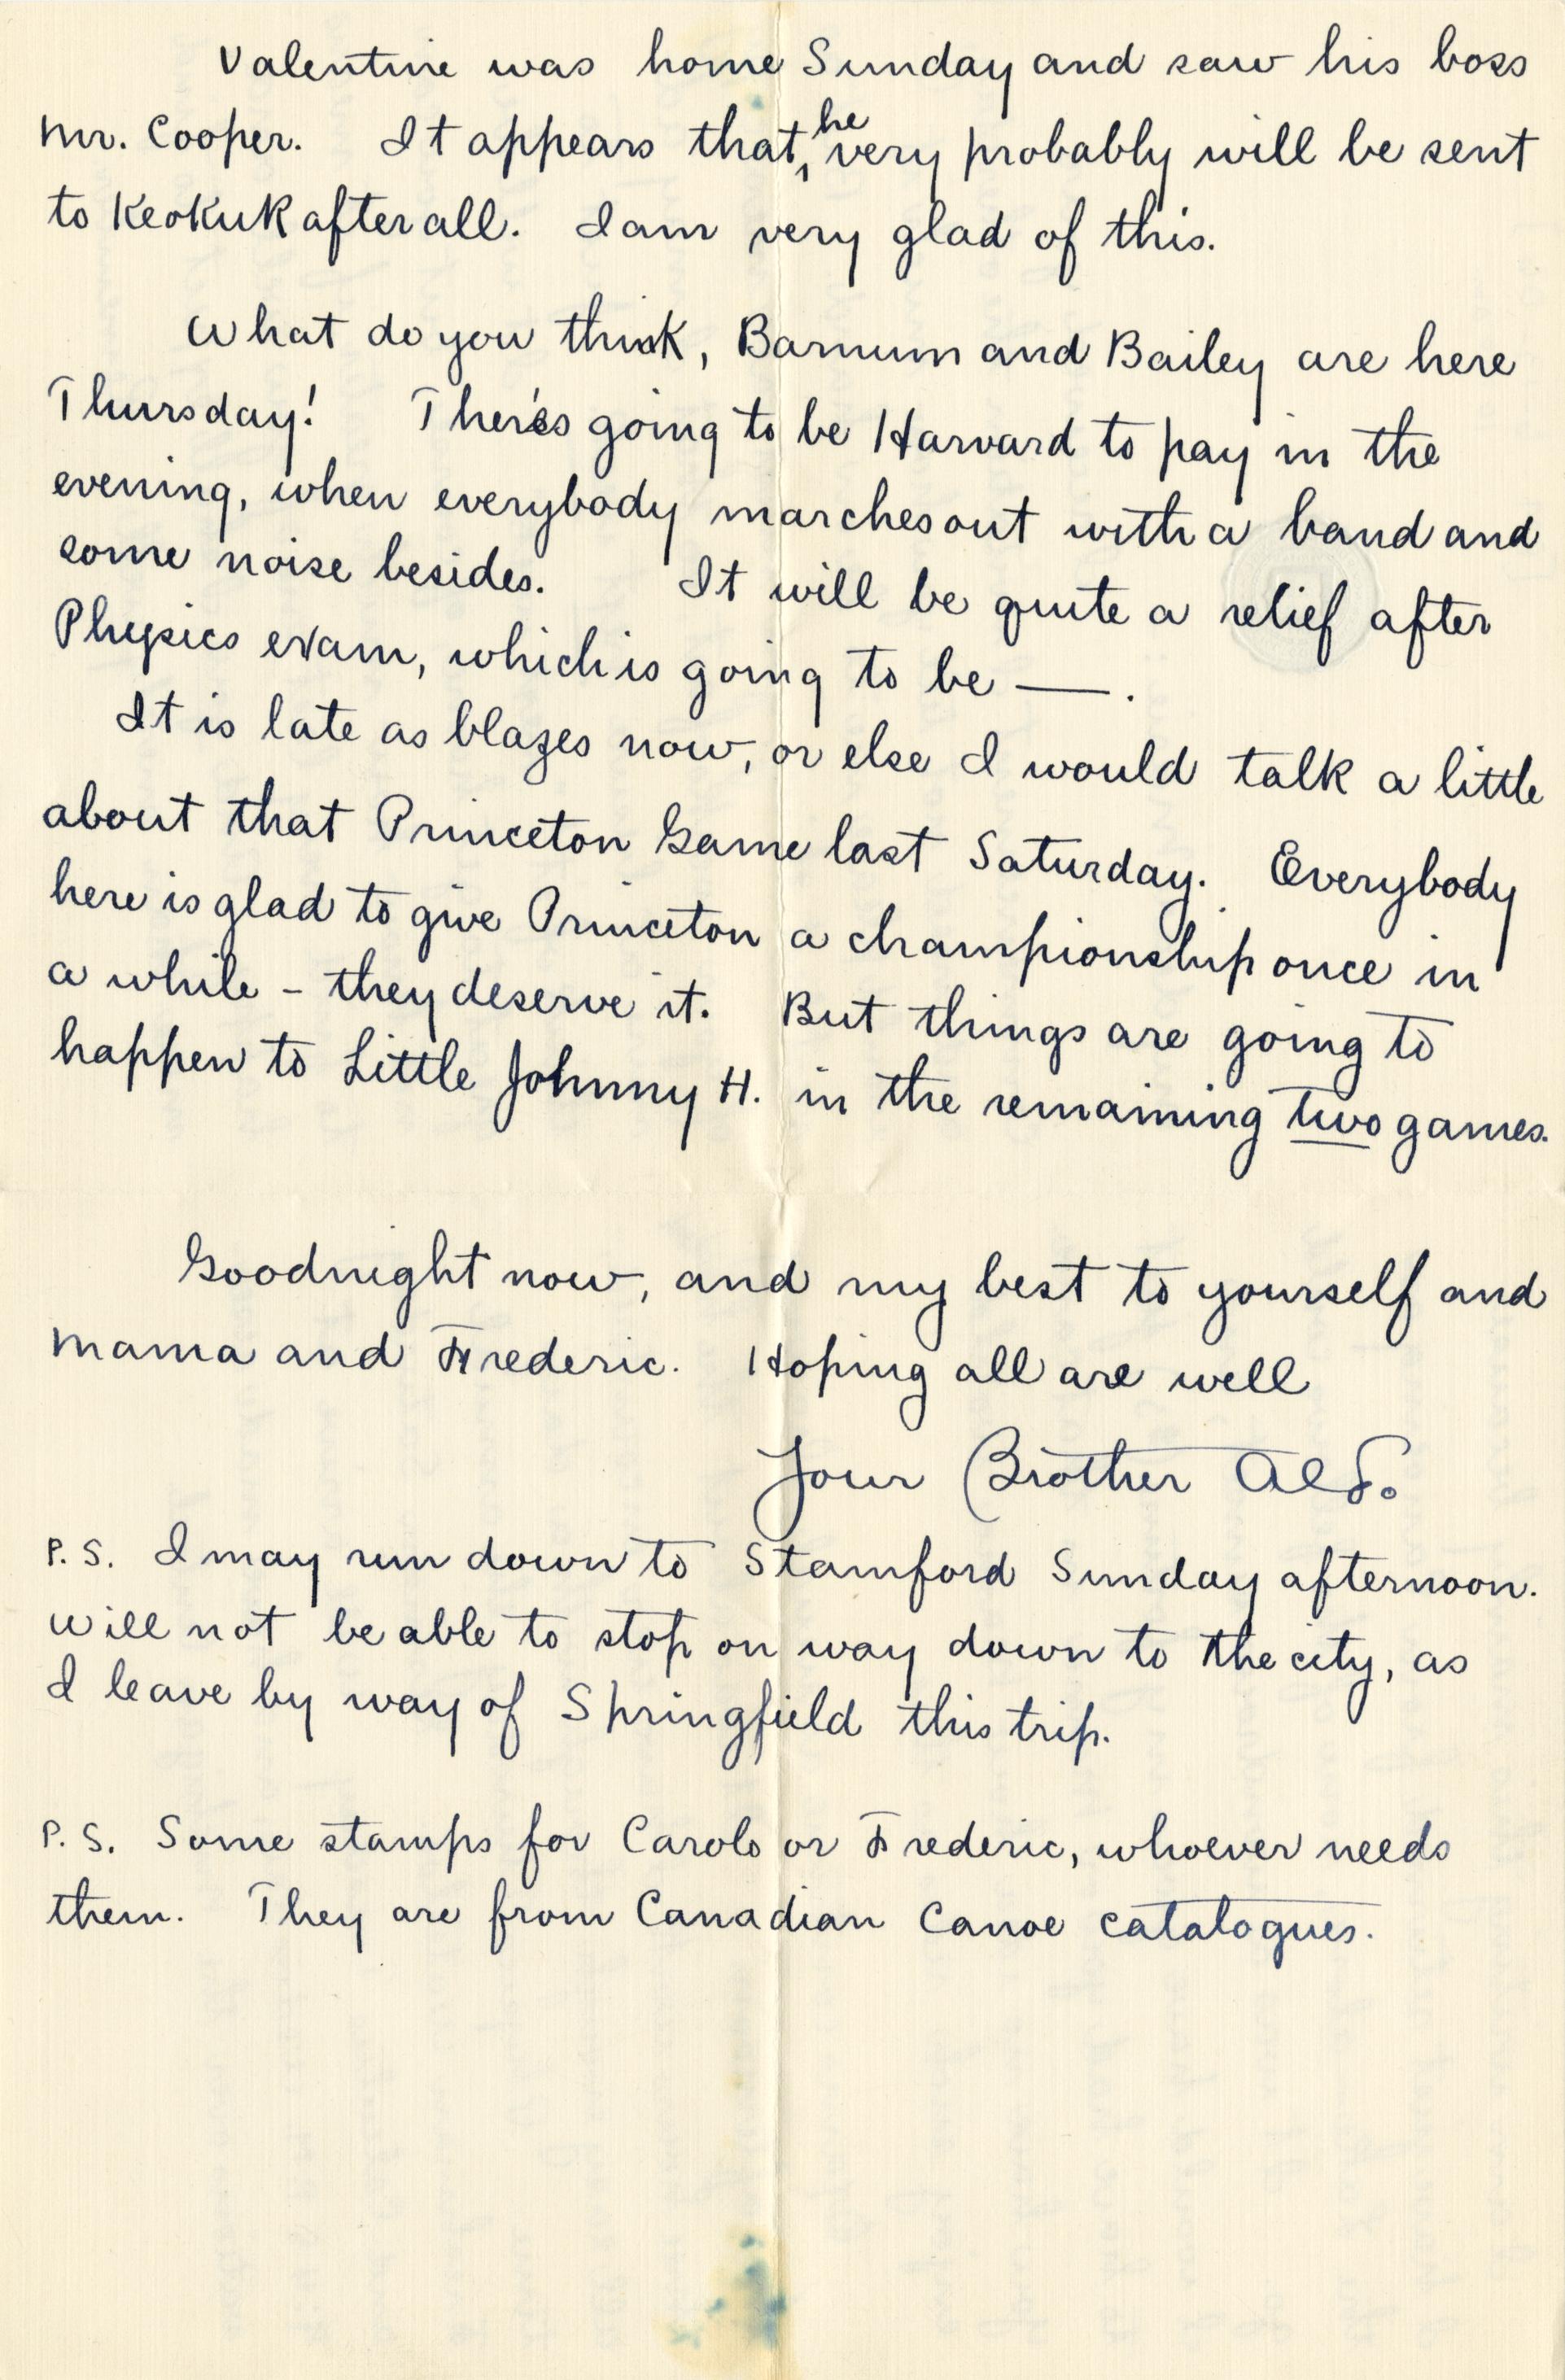 Valentine was home Sunday and saw his boss
Mr. Cooper. It appears that, he very probably will be sent
to Keokuk after all. I am very glad of this.
What do you think, Barnum and Bailey are here
Thursday! There's going to be Harvard to pay in the
evening, when everybody marches out with a band and
some noise besides. It will be quite a relief after
Physics exam, which is going to be —.
It is late as blazes now, or else I would talk a little
about that Princeton Game last Saturday. Everybody
here is glad to give Princeton a championship once in
a while - they deserve it. But things are going to
happen to Little Johnny H. in the remaining two games.
Goodnight now, and my best to yourself and
Mama and Frederic. Hoping all are well
Your Brother Alf.
P. S. I may run down to Stamford Sunday afternoon.
Will not be able to stop on way down to the city, as
I leave by way of Springfield this trip.
P. S. Some stamps for Carolo or Frederic, whoever needs
them. They are from Canadian Canoe catalogues.